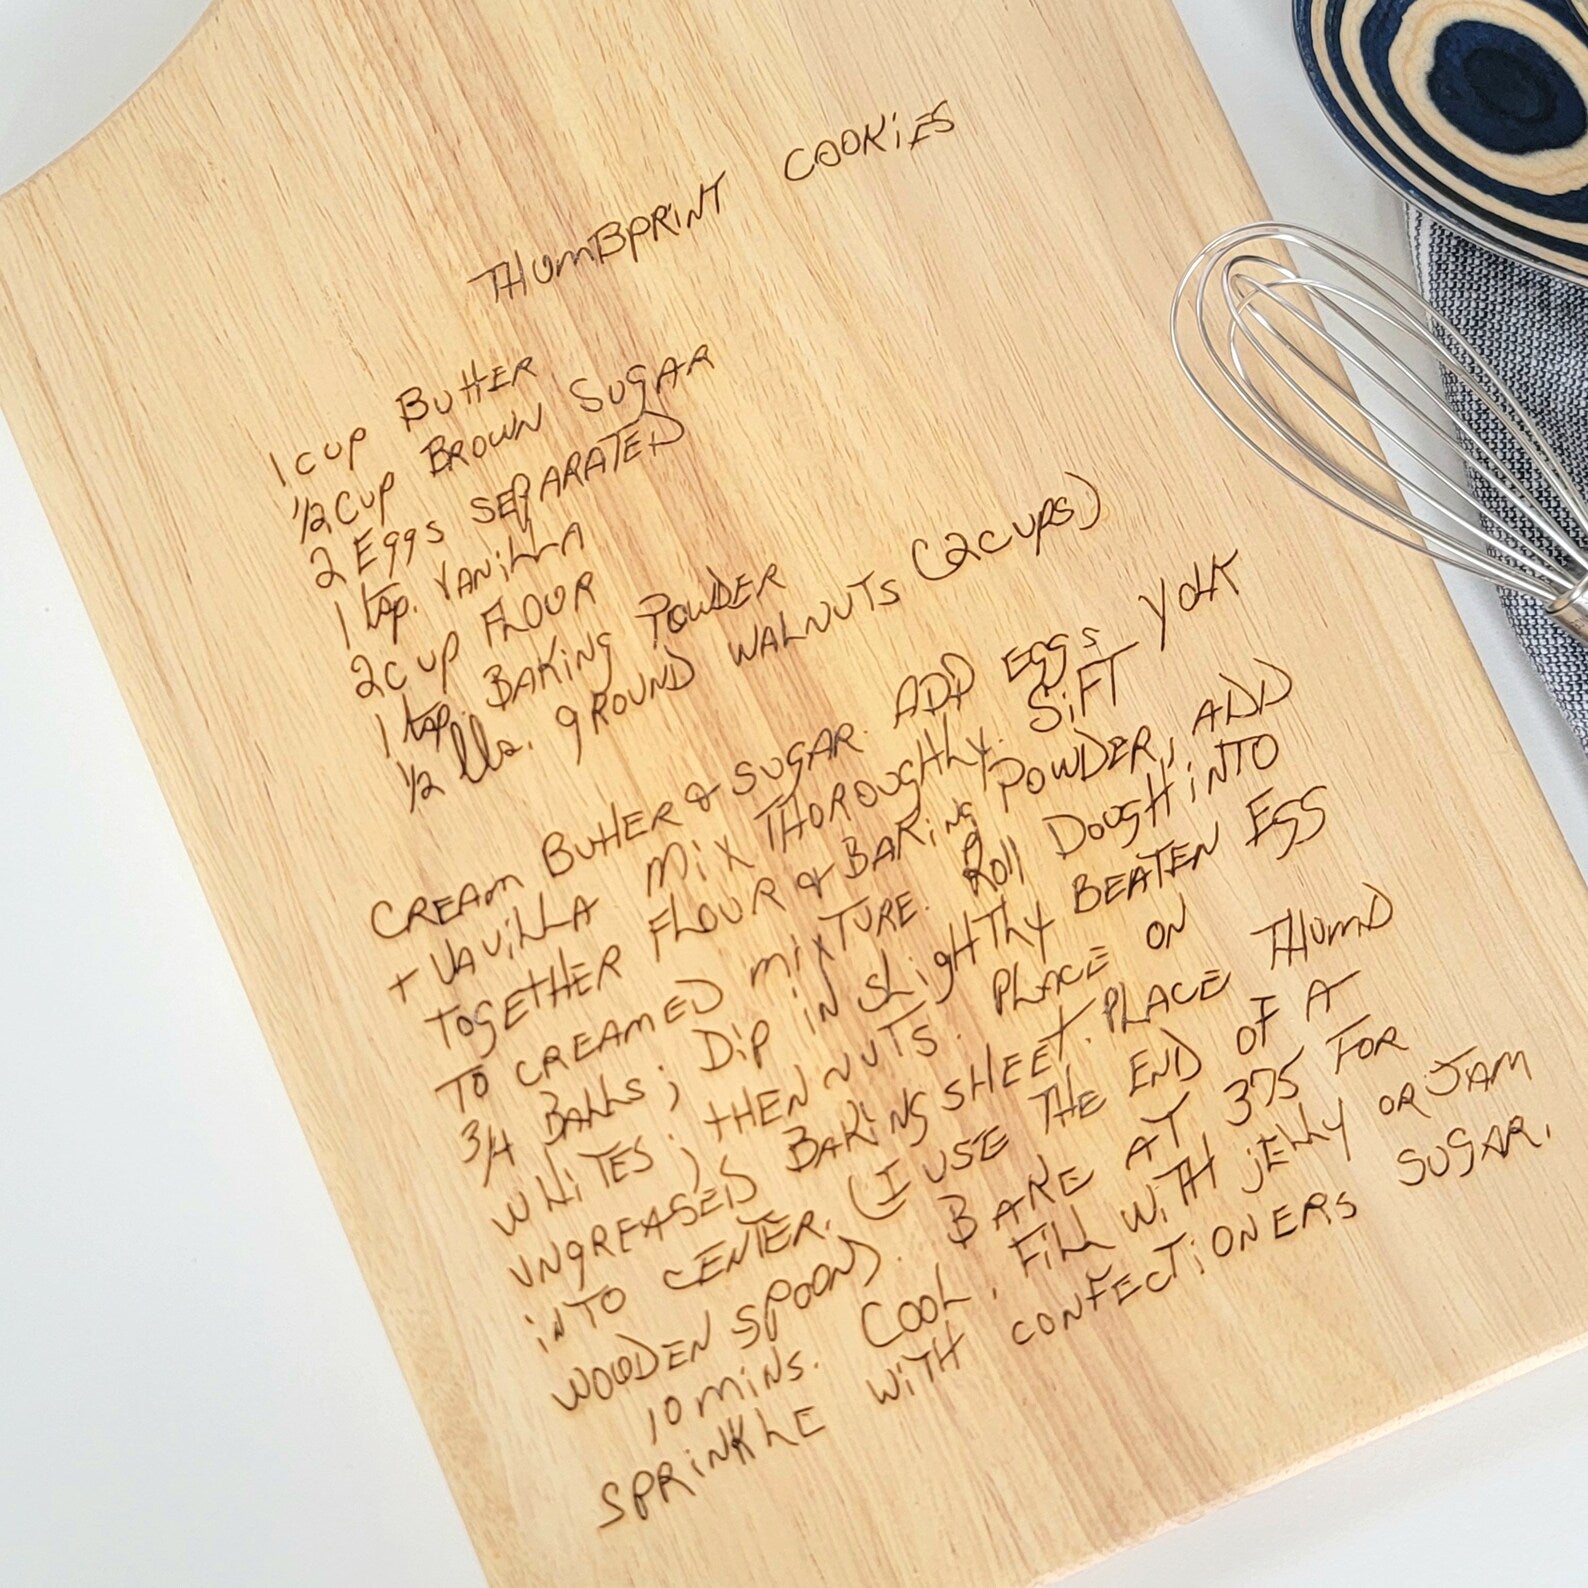 THUMBPRINT COOKIES
1 CUP BUTTER
1/2 CUP BROWN SUGAR
2 EGGS SEPARATED
1 tsp. VANILLA
2 CUP FLOUR
1 tsp. BAKING POWDER
1/2 lbs. GROUND WALNUTS (2 CUPS)
CREAM BUTTER & SUGAR. ADD EGGS YOLK
+ VANILLA MIX THOROUGHLY. SIFT
TOGETHER FLOUR & BAKING POWDER, ADD
TO CREAMED MIXTURE. ROLL DOUGH INTO
3/4 BALLS; DIP IN SLIGHTLY BEATEN EGG
WHITES; THEN NUTS. PLACE ON
UNGREASED BAKING SHEET. PLACE THUMB
INTO CENTER. (I USE THE END OF A
WOODEN SPOON). BAKE AT 375 FOR
10 MINS. COOL. FILL WITH JELLY OR JAM
SPRINKLE WITH CONFECTIONERS SUGAR.